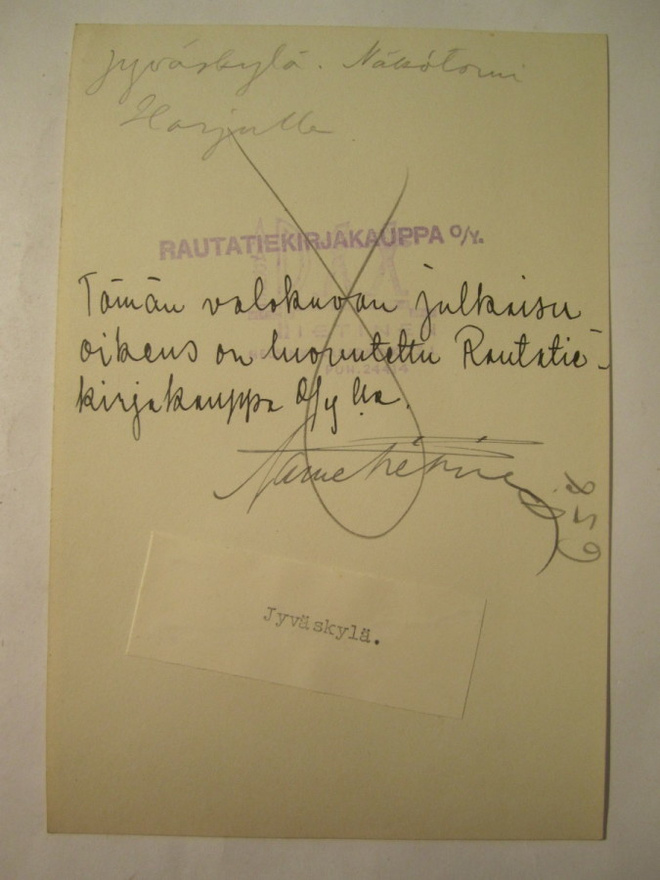 Jyväskylä. Näkötorni
Harjulla
RAUTATIEKIRJAKAUPPA O/Y.
Tämän valokuvan julkaisu
oikeus on luovutettu Rautatie-
kirjakauppa O/y lla.
PUH. 24414
Jyväskylä.